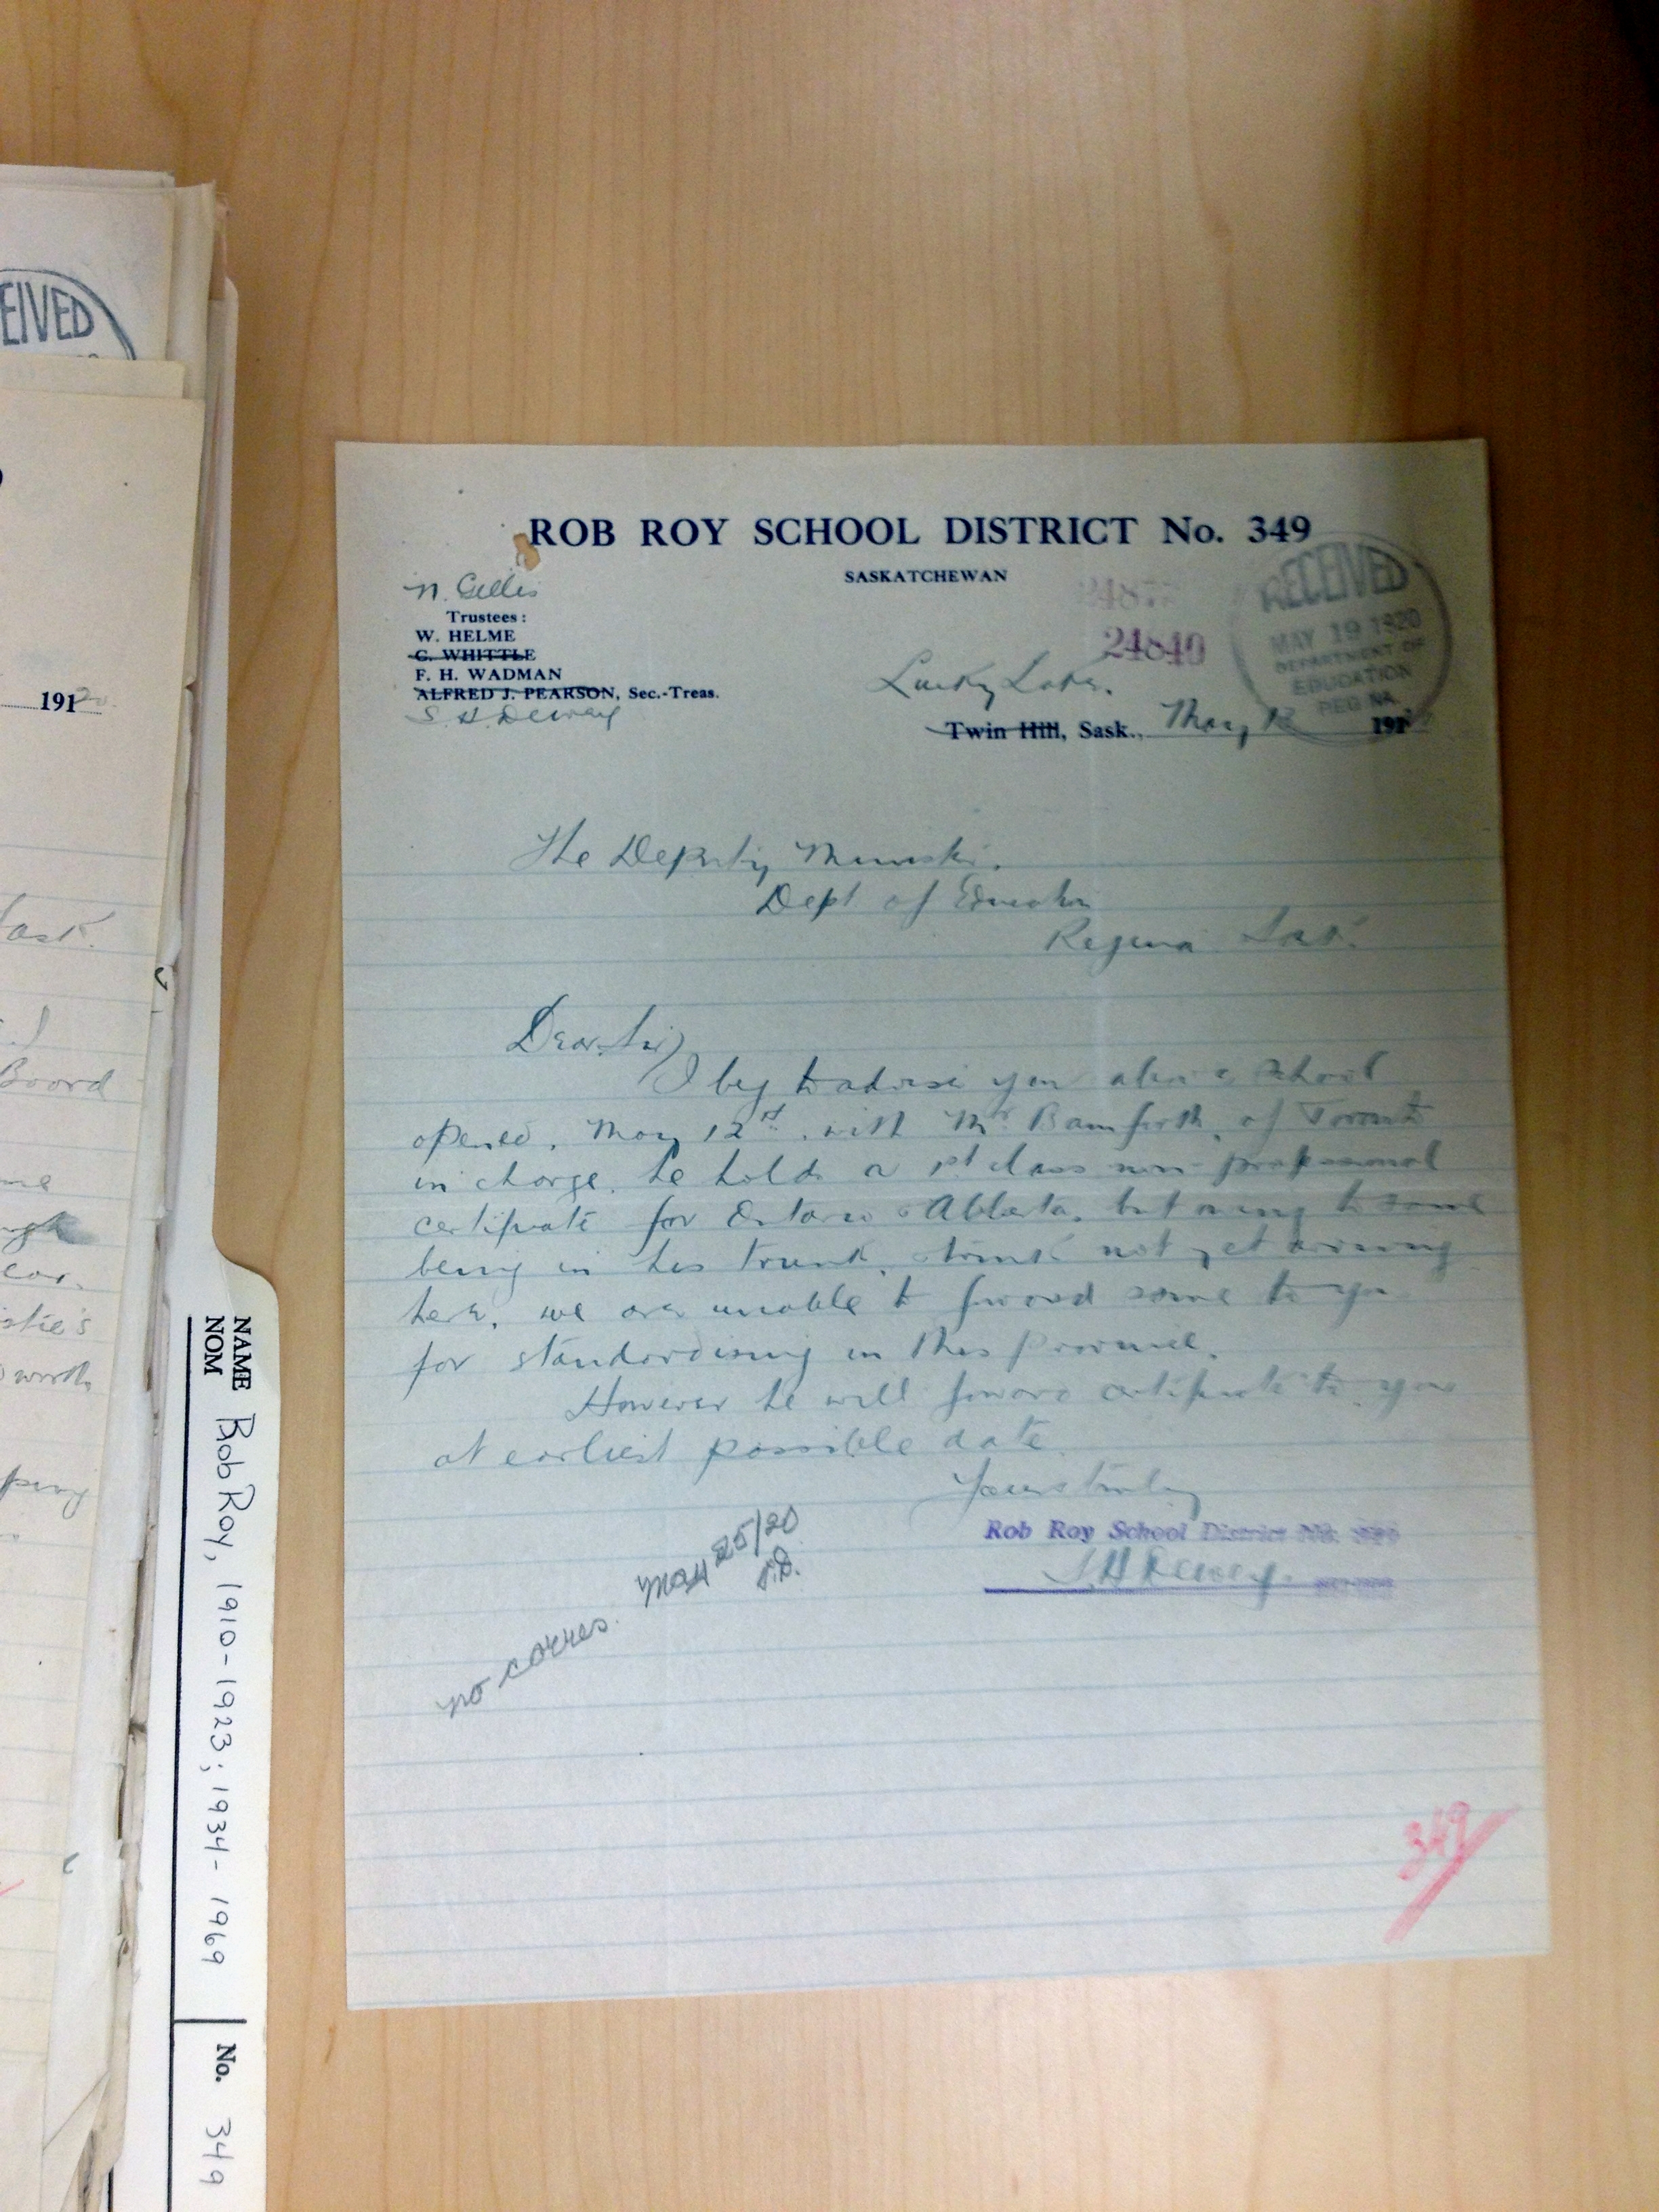 ROB ROY SCHOOL DISTRICT No. 349
SASKATCHEWAN
N. Gillis
Trustees:
W. HELME
C. WHITTLE
F. H. WADMAN
ALFRED J. PEARSON, Sec.-Treas.
S. H. Dewey
24840
RECEIVED
MAY 19 1920
DEPARTMENT OF
EDUCATION
REGINA
Lucky Lake.
Twin Hill, Sask., May 191
The Deputy Minister.
Dept of Education
Regina Sask.
Dear Sir,
I beg to advise you above School
opened, May 12th, with Mr Bamforth, of Toronto
in charge. he holds a 1st class non-professional
certificate for Ontario & Alberta, but owing to same
being in his trunk, & trunk not yet arriving
here, we are unable to forward same to you
for standardising in this province.
However he will forward certificate to you
at earliest possible date.
Yours truly
Rob Roy School District No. 349
S. H. Dewey.
no corres. May 25/20
349
EIVED
191
ask.
Board
NAME Rob Roy, 1910-1923; 1934-1969
NOM
No. 349